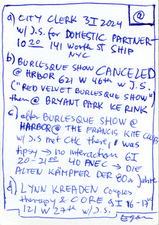 2
a) CITY CLERK 3I 2024
w/ J.S. for DOMESTIC PARTNER-
10 20 141 WORTH ST SHIP
NYC
b) BURLESQUE SHOW CANCELED
@ HARBOR 621 W 46th w J.S.
("RED VELVET BURLESQUE SHOW")
then @ BRYANT PARK ICE RINK
c) after BURLESQUE SHOW @
HARBOR @ THE FRANCIS KITE CLUB
w/ J.S met CHC there, I was
tipsy → no interactions 6I
20-21 40 AVE C → DIE
ALTEN KÄMPFER DER 80s Jahre
d) LYNN KREADEN couples
therapy & CORE 9I 16-17
121 W 27th w/ J.S.